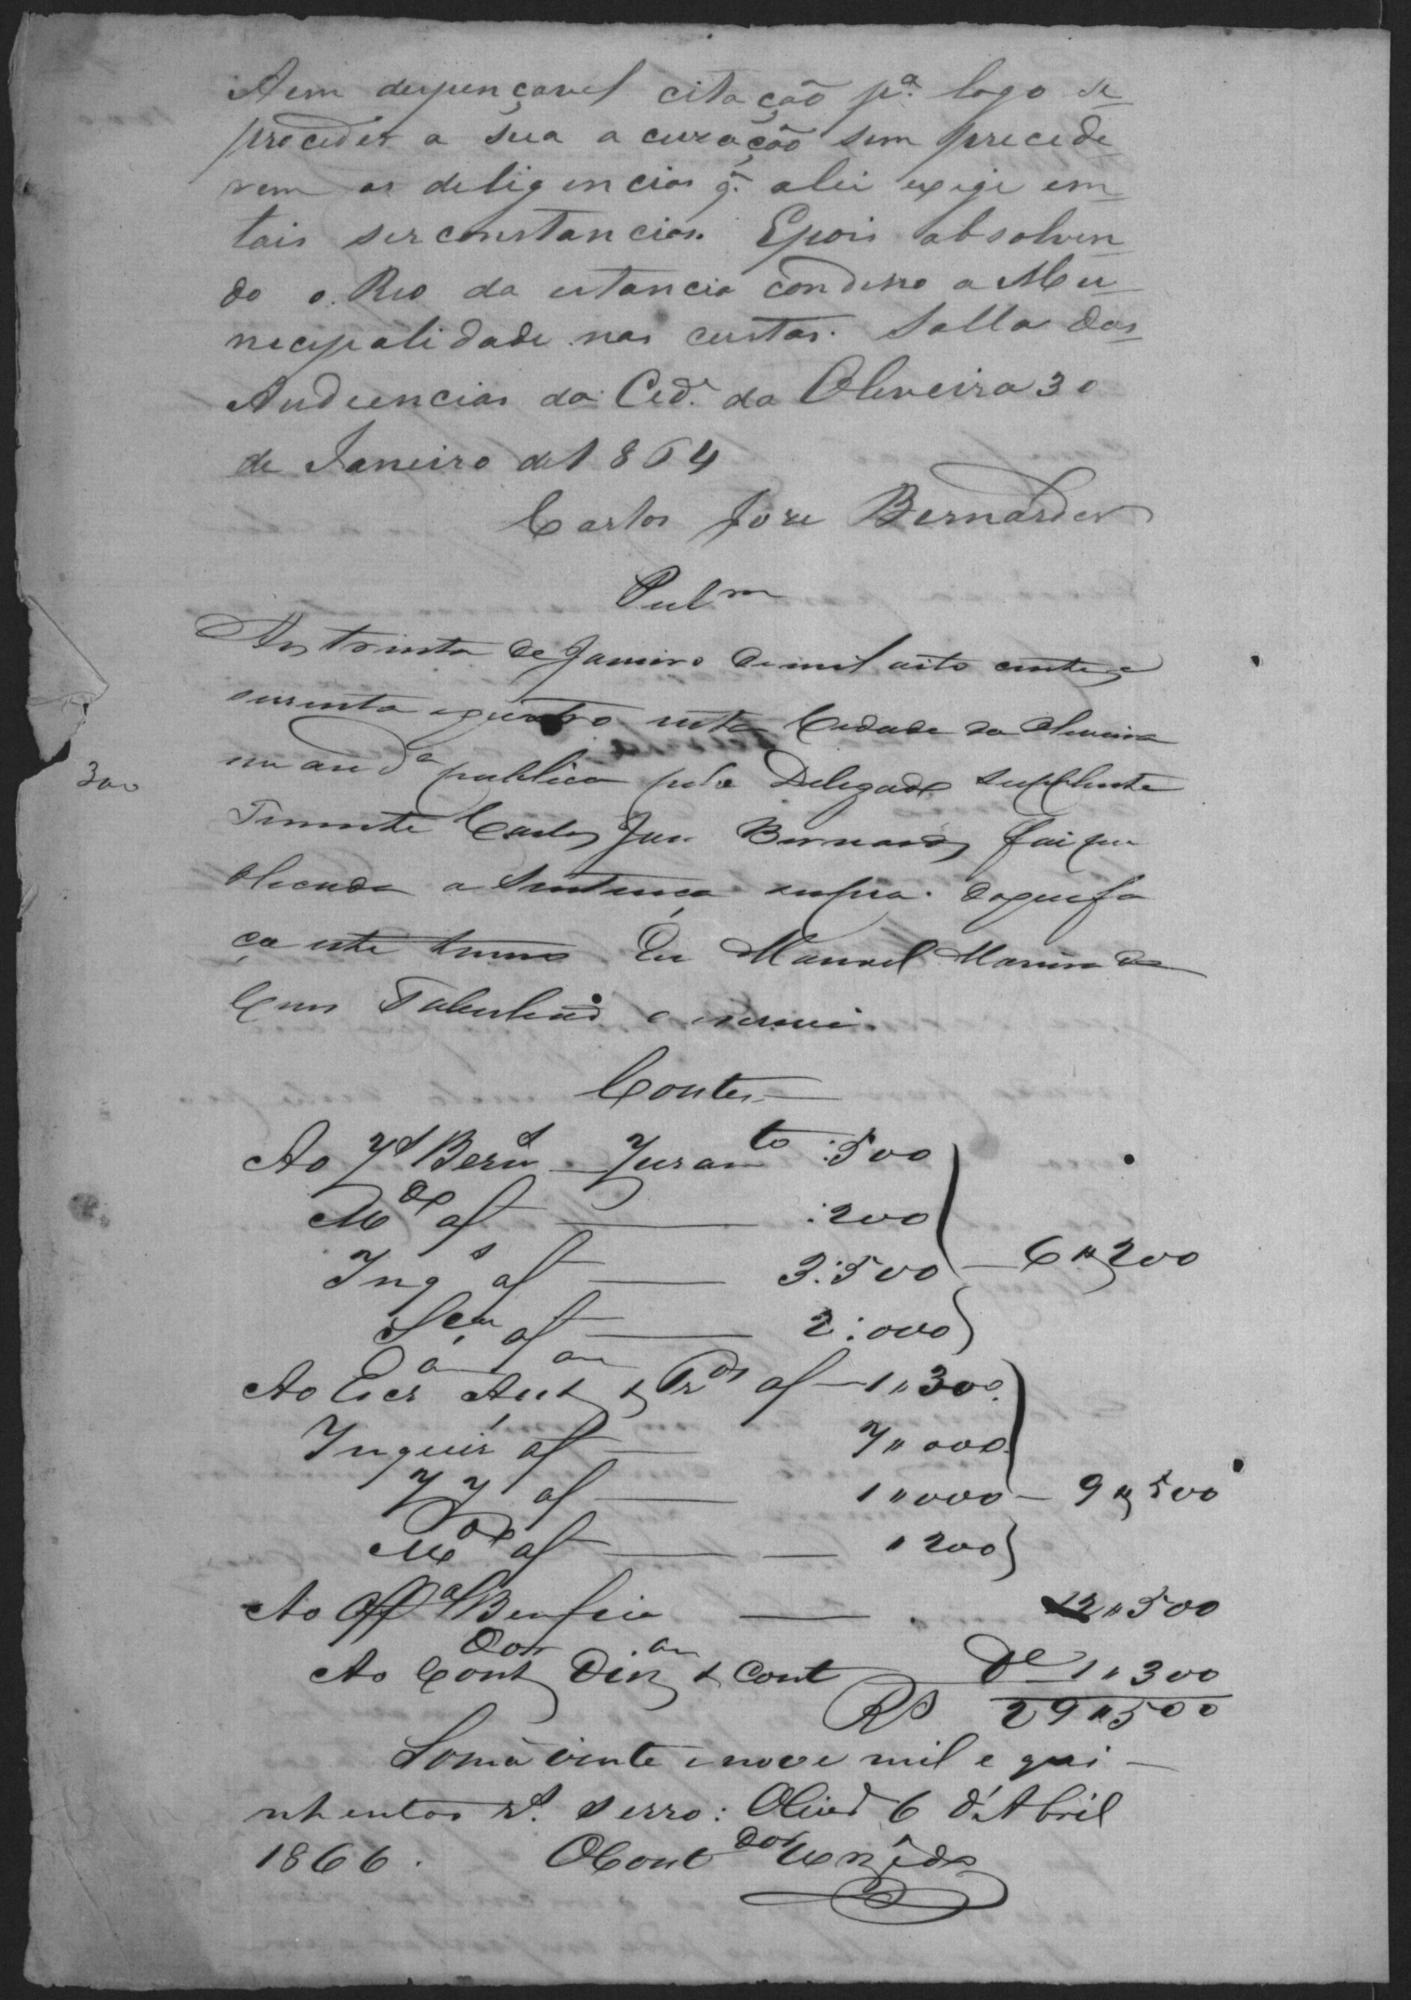 A em despençavel citação pª logo se
proceder a sua acuzação sem precede
rem as deligencias q̃. alei exige em
tais serconstancias. Epois absolven
do o Reo da estancia condeno a Mu
necipalidade nas custas. Salla das
Audiencias da Cidᵉ. da Oliveira 30
de Janeiro de 1864
Carlos Joze Bernardes
Pulᵐ
Aos trinta de Janeiro de mil oito centos e
sessenta e quatro nesta Cidade da Oliveira
300
em audª publica pelo Delegado Supplente
Tenente Carlos Jose Bernardes foi pu
blicada a Sentença supra. doque fa
ço este termo Eu Manoel
Tabelião o escrevi.
Conta
Ao Jˢ Berⁿˢ Juramᵗᵒ :500
Mᵈᵒ af :200
Inqˢ af 3:500 — 6"200
Sᶜᵃ af 2:000
Ao Escᵃᵐ Autᵃᵐ e Trᵒˢ af — 1"300
Inquir af 7"000
af 1"000 — 9"500
Mᵈᵒ af "200
Ao Offᵃˡ Bemfica 12"500
Ao Contᵈᵒʳ e Cont Dᵉ 1"300
Rˢ 29"500
Soma vinte e nove mil e qui
nhentos rˢ. serro: Olivᵃ 6 d'Abril
1866. O Contᵈᵒʳ